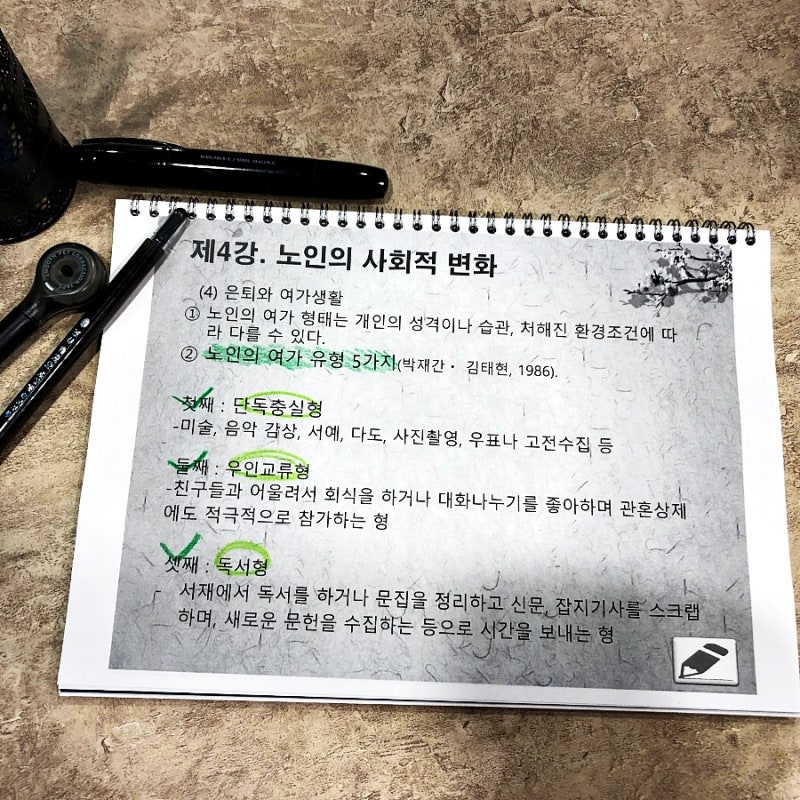 제4강. 노인의 사회적 변화
(4) 은퇴와 여가생활
① 노인의 여가 형태는 개인의 성격이나 습관, 처해진 환경조건에 따
라 다를 수 있다.
② 노인의 여가 유형 5가지(박재간· 김태현, 1986).
첫째 : 단독충실형
-미술, 음악 감상, 서예, 다도, 사진촬영, 우표나 고전수집 등
둘째 : 우인교류형
-친구들과 어울려서 회식을 하거나 대화나누기를 좋아하며 관혼상제
에도 적극적으로 참가하는 형
셋째 : 독서형
- 서재에서 독서를 하거나 문집을 정리하고 신문, 잡지기사를 스크랩
하며, 새로운 문헌을 수집하는 등으로 시간을 보내는 형